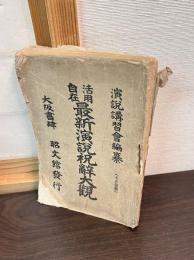 演説講習會編纂
活用自在
最新演説祝辭大觀
大阪書肆 昭文館發行